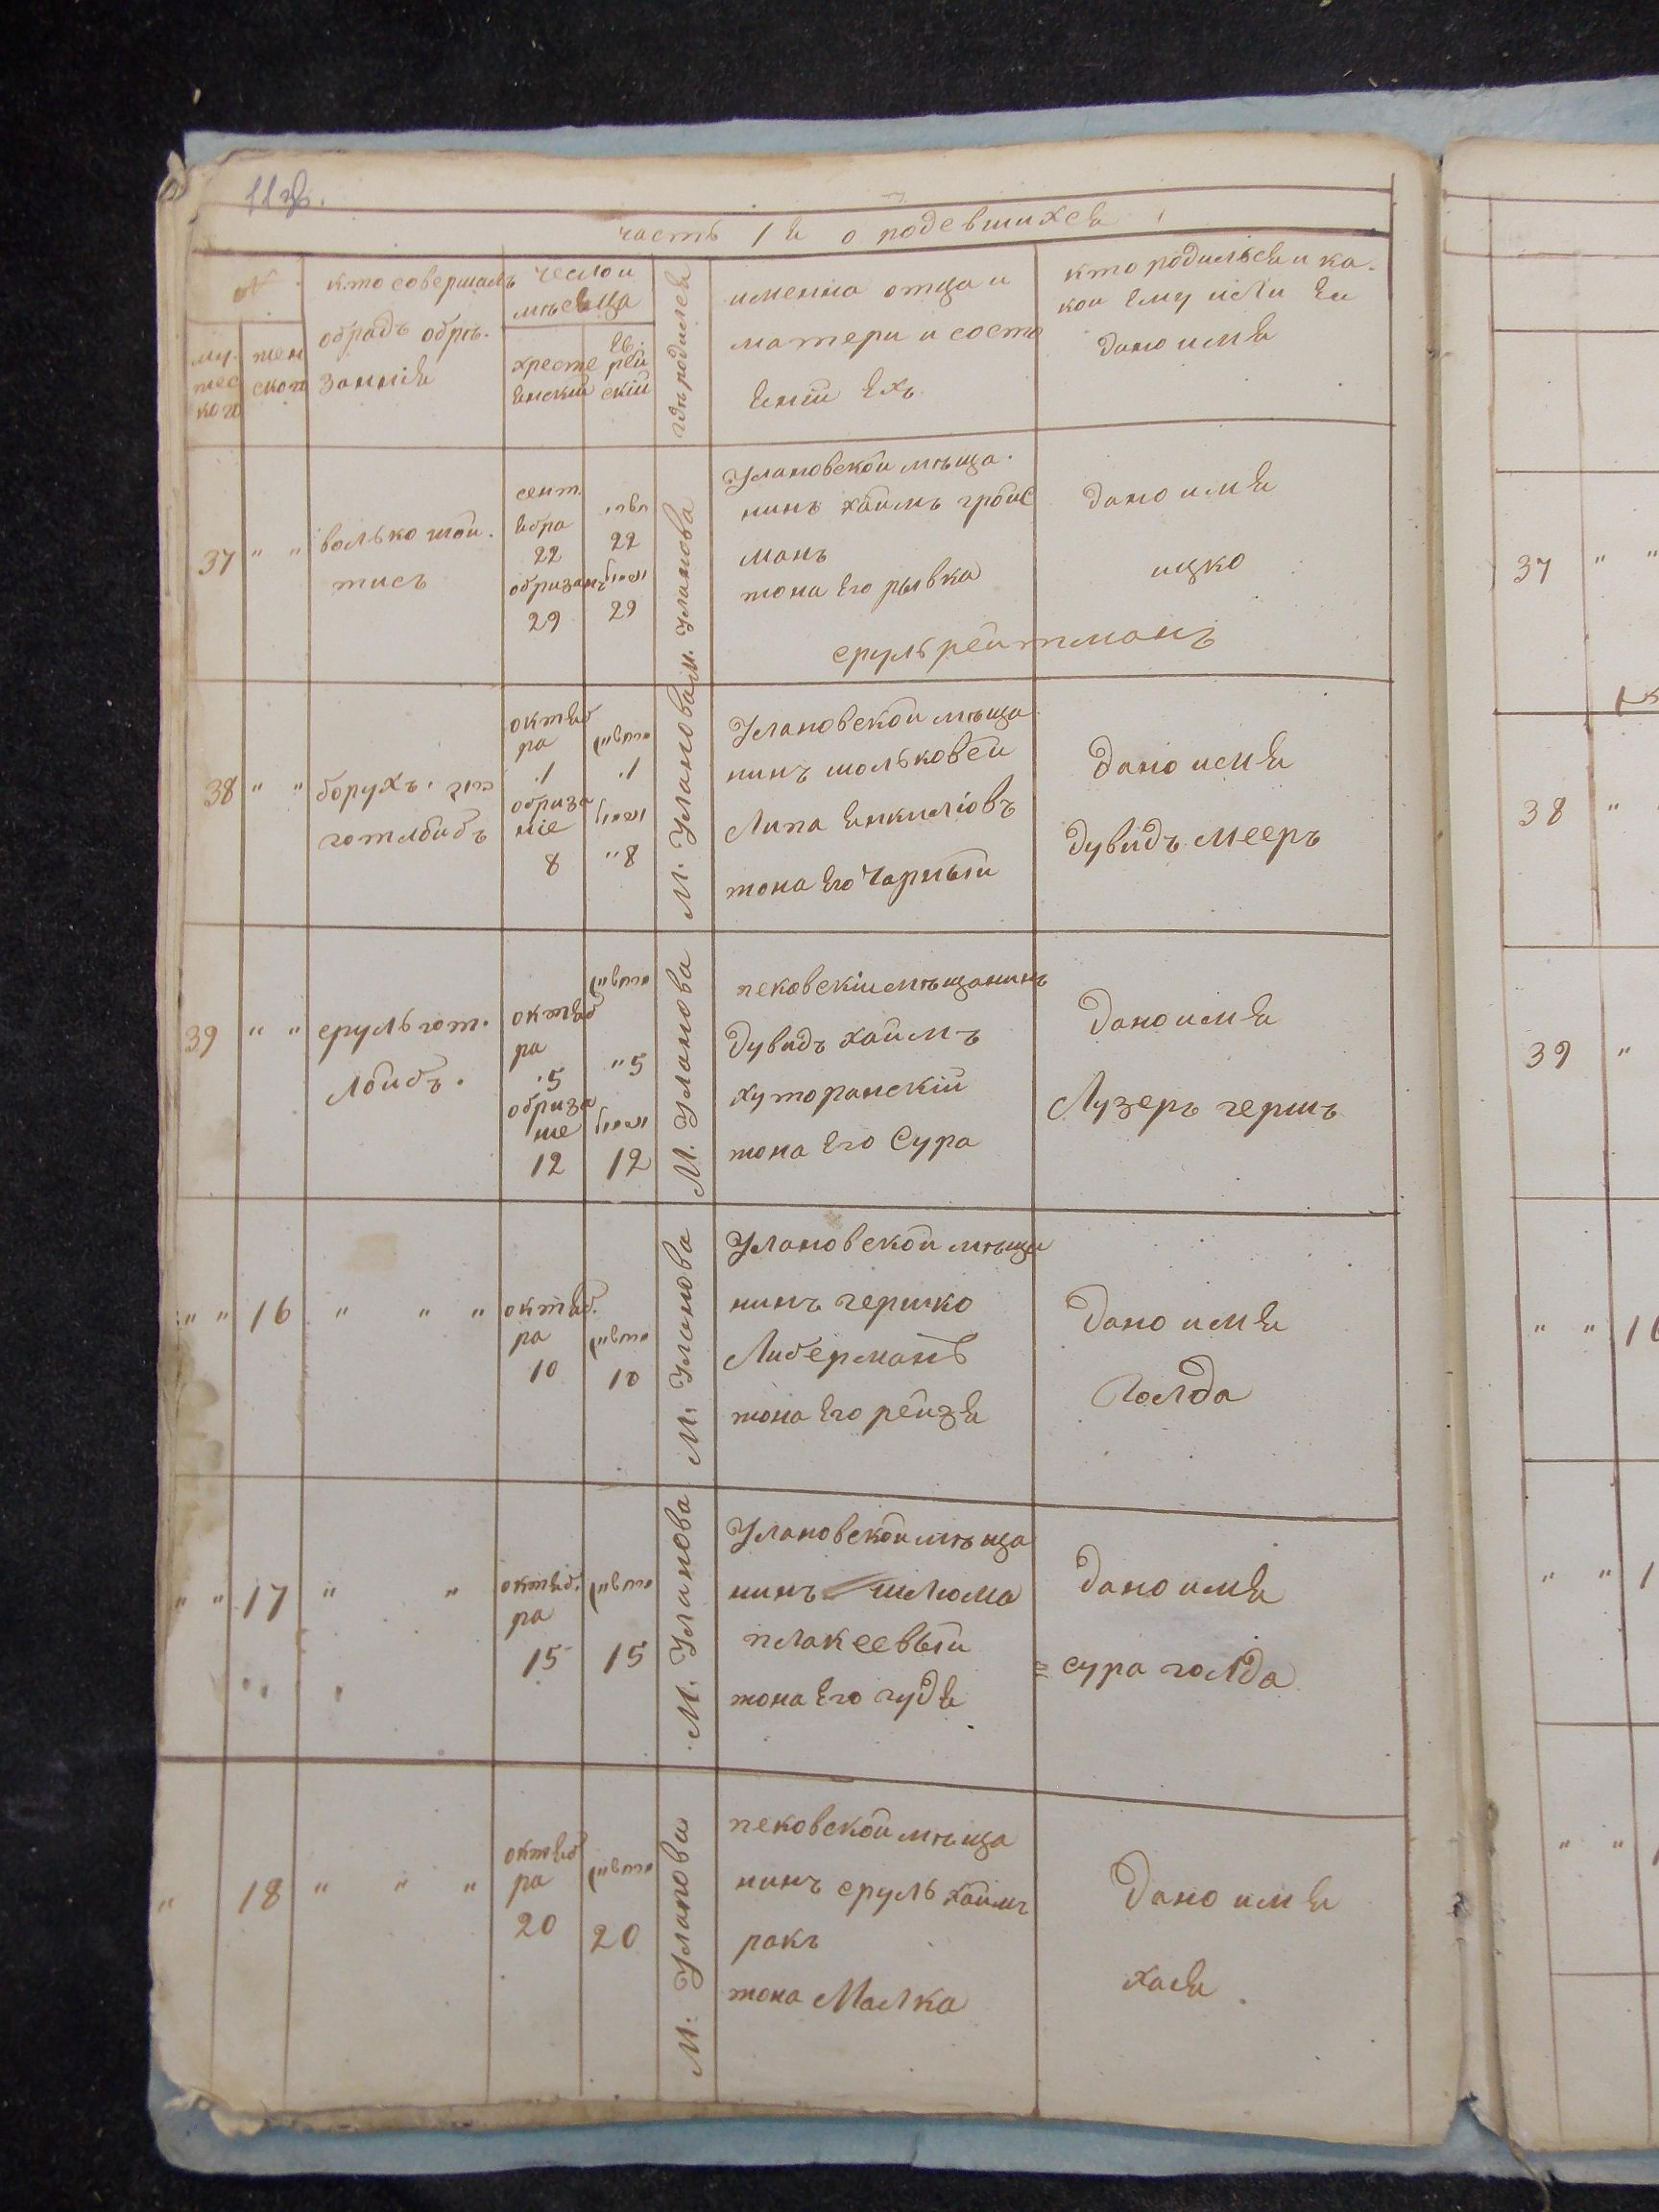 часть 1 я о родевшихся
№
му-
жес
кого
жен
ского
кто совершалъ
обрадъ обрѣ-
занния
число и
мѣсяца
христе
янский
ев-
рей
скій
гдѣ родился
именна отца и
матери и состо
яній ехъ
кто родилься и ка-
кои ему или еи
дано имя
37 " "
волько шои-
тисъ
сент.
ября
22
22
образан
29
29
м. Уланова
Улановской мѣща-
нинъ хаимъ гроис
манъ
жона его рывка
дано имя
ицко
сруль реитманъ
38 " "
борухъ
готлбибъ
октяб
ра
1
1
обриза
ніе
8
"8
М. Уланова
Улановской мѣща
нинъ шольковеи
Липа янкилiовъ
жона его Чарныи
дано имя
дувидъ мееръ
39 " "
сруль гот-
лбибъ.
октяб
ра
5
"5
обриза
ние
12
12
М. Уланова
пековскій мѣщанинъ
дувидъ хаимъ
хуторанскій
жона его Сура
дано имя
Лузеръ гершъ
" " 16 " " "
октяб.
ра
10
10
М. Уланова
Улановской мѣща
нинъ гершко
Либерманъ
жона его реизя
дано имя
Голда
" " 17 " "
октяб.
ра
15
15
М. Уланова
Улановской мѣща
нинъ шлюма
плаксевыи
жона его гудя
дано имя
сура голда
" 18 " " "
октяб
ра
20
20
М. Уланова
пековской мѣща
нинъ сруль хаимъ
ракъ
жона Малка
дано имя
хася
37 " "
38 "
39 "
" "
" "
" "